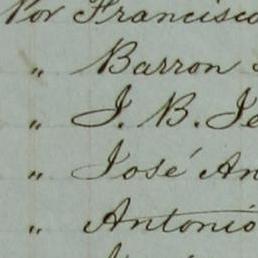 Por Francisco
„ Barron
„ J. B. Je
„ José An
„ Antonio